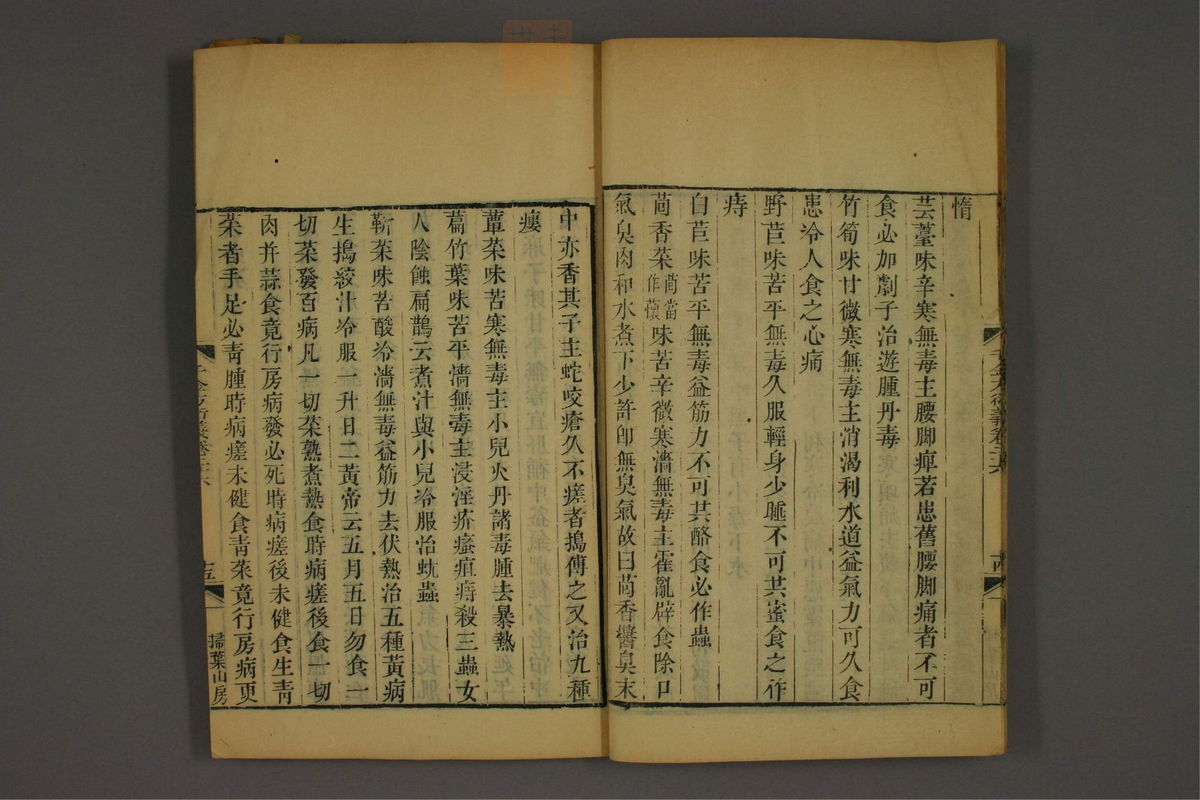 惰
芸薹味辛寒無毒主腰脚痺若患舊腰脚痛者不可
食必加劇子治遊腫丹毒
竹筍味甘微寒無毒主消渴利水道益氣力可久食
患冷人食之心痛
野苣味苦平無毒久服輕身少睡不可共蜜食之作
痔
白苣味苦平無毒益筋力不可共酪食必作蟲
茼香菜茼當作蘹味苦辛微寒濇無毒主霍亂辟食除口
氣臭肉和水煮下少許卽無臭氣故曰茼香醬臭末
中亦香其子主蛇咬瘡久不瘥者搗傅之又治九種
瘻
蕈菜味苦寒無毒主小兒火丹諸毒腫去暴熱
萹竹葉味苦平濇無毒主浸淫疥瘙疽痔殺三蟲女
人陰蝕扁鵲云煮汁與小兒冷服治蚘蟲
靳菜味苦酸冷濇無毒益筋力去伏熱治五種黃病
生搗絞汁冷服一升日二黃帝云五月五日勿食一
切菜發百病凡一切菜熟煮熱食時病瘥後食一切
肉并蒜食竟行房病發必死時病瘥後未健食生靑
菜者手足必靑腫時病瘥未健食靑菜竟行房病更
十五
掃葉山房